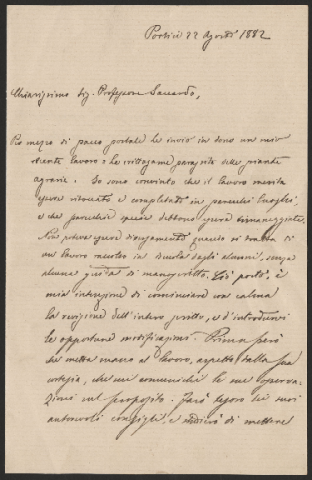 Portici 22 Agosto 1882
Chiarissimo Sig. Professore Saccardo,
Per mezzo di pacco postale le invio in dono un mio
recente lavoro: le crittogame parassite delle piante
agrarie. Io sono convinto che il lavoro merita
essere ritoccato e completato in parecchi luoghi,
e che parecchie specie debbono essere rimaneggiate.
Non poteva essere diversamente quando si tratta di
un lavoro raccolto in iscuola dagli alunni, senza
alcuna guida di manoscritto. Ciò posto, è
mia intenzione di cominciare con calma
la revisione dell'intero scritto, e d'introdurvi
le opportune modificazioni. Prima però
che metta mano al lavoro, aspetto dalla sua
cortesia, che mi comunichi le sue osserva-
zioni sul proposito. Farò tesoro dei suoi
autorevoli consigli, e di mettere